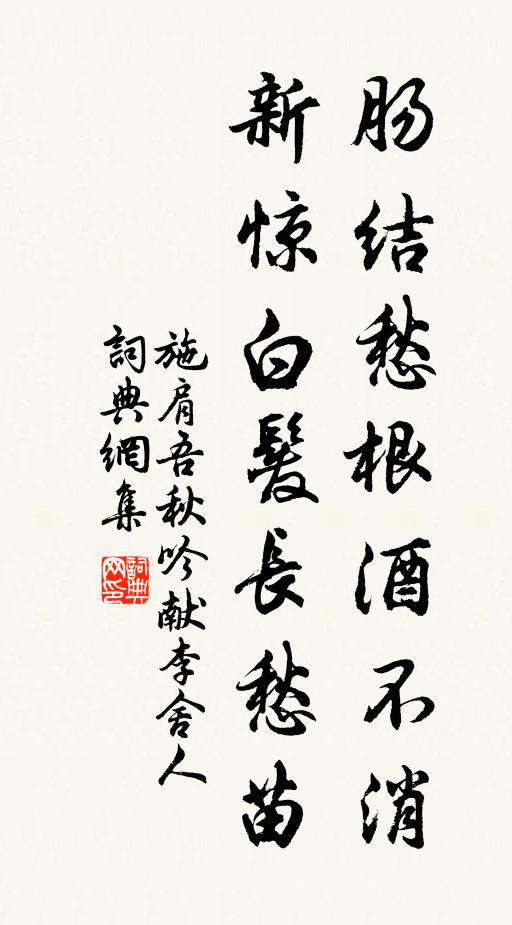 肠结愁根酒不消
新惊白髮長愁苗
施肩吾秋吟献李舍人
詞典網集
詞典网印